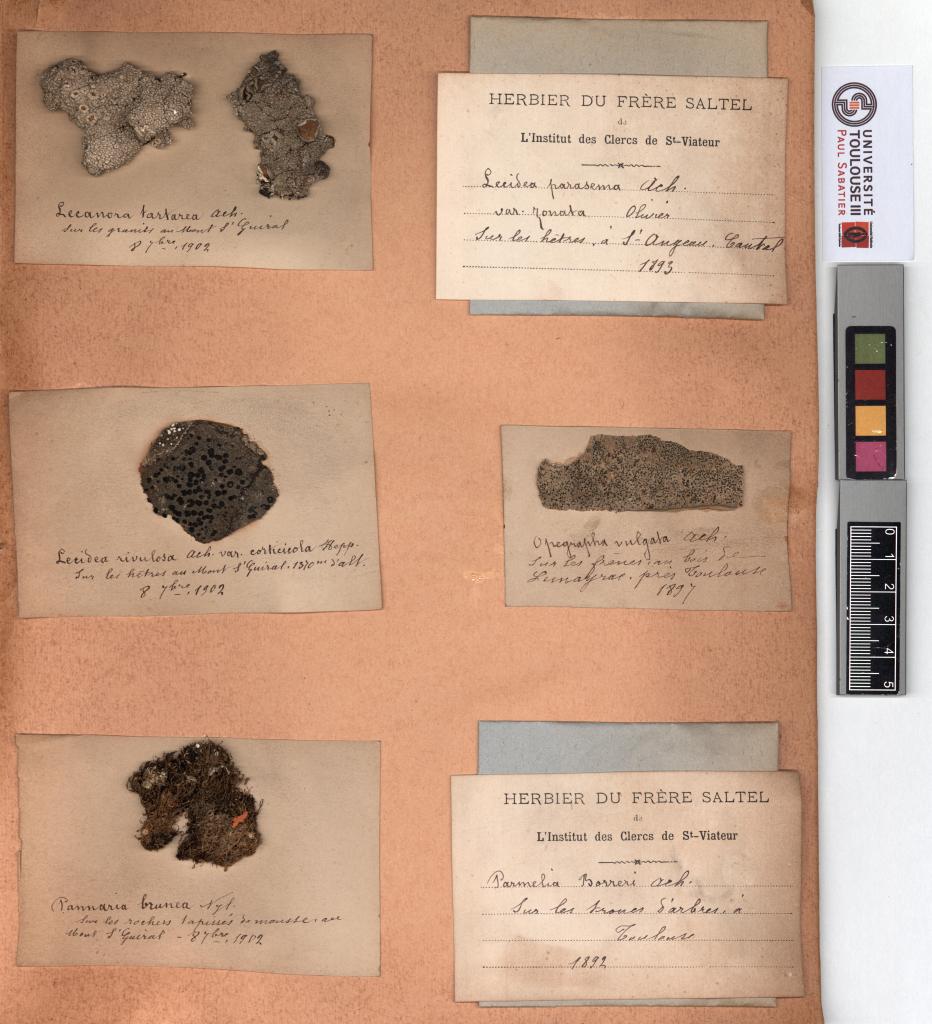 Lecanora tartarea Ach.
Sur les granits au Mont St Guiral
8 7bre, 1902
HERBIER DU FRÈRE SALTEL
de
L'Institut des Clercs de St-Viateur
Lecidea parasema Ach.
var. zonata Olivier
Sur les hêtres, à St-Angeau, Cantal
1893
UNIVERSITÉ
TOULOUSE III
PAUL SABATIER
Lecidea rivulosa Ach. var. corticicola Hepp.
Sur les hêtres au Mont St Guiral. 1370m d'alt.
8 7bre, 1902
Opegrapha vulgata Ach.
Sur les frênes, au bois de
Lunayrac, près Toulouse
1897
0 1 2 3 4 5
Pannaria brunea Nyl.
Sur les rochers tapissés de mousse, au
Mont St Guiral - 8 7bre, 1902
HERBIER DU FRÈRE SALTEL
de
L'Institut des Clercs de St-Viateur
Parmelia Borreri Ach.
Sur les troncs d'arbres, à
Toulouse
1892